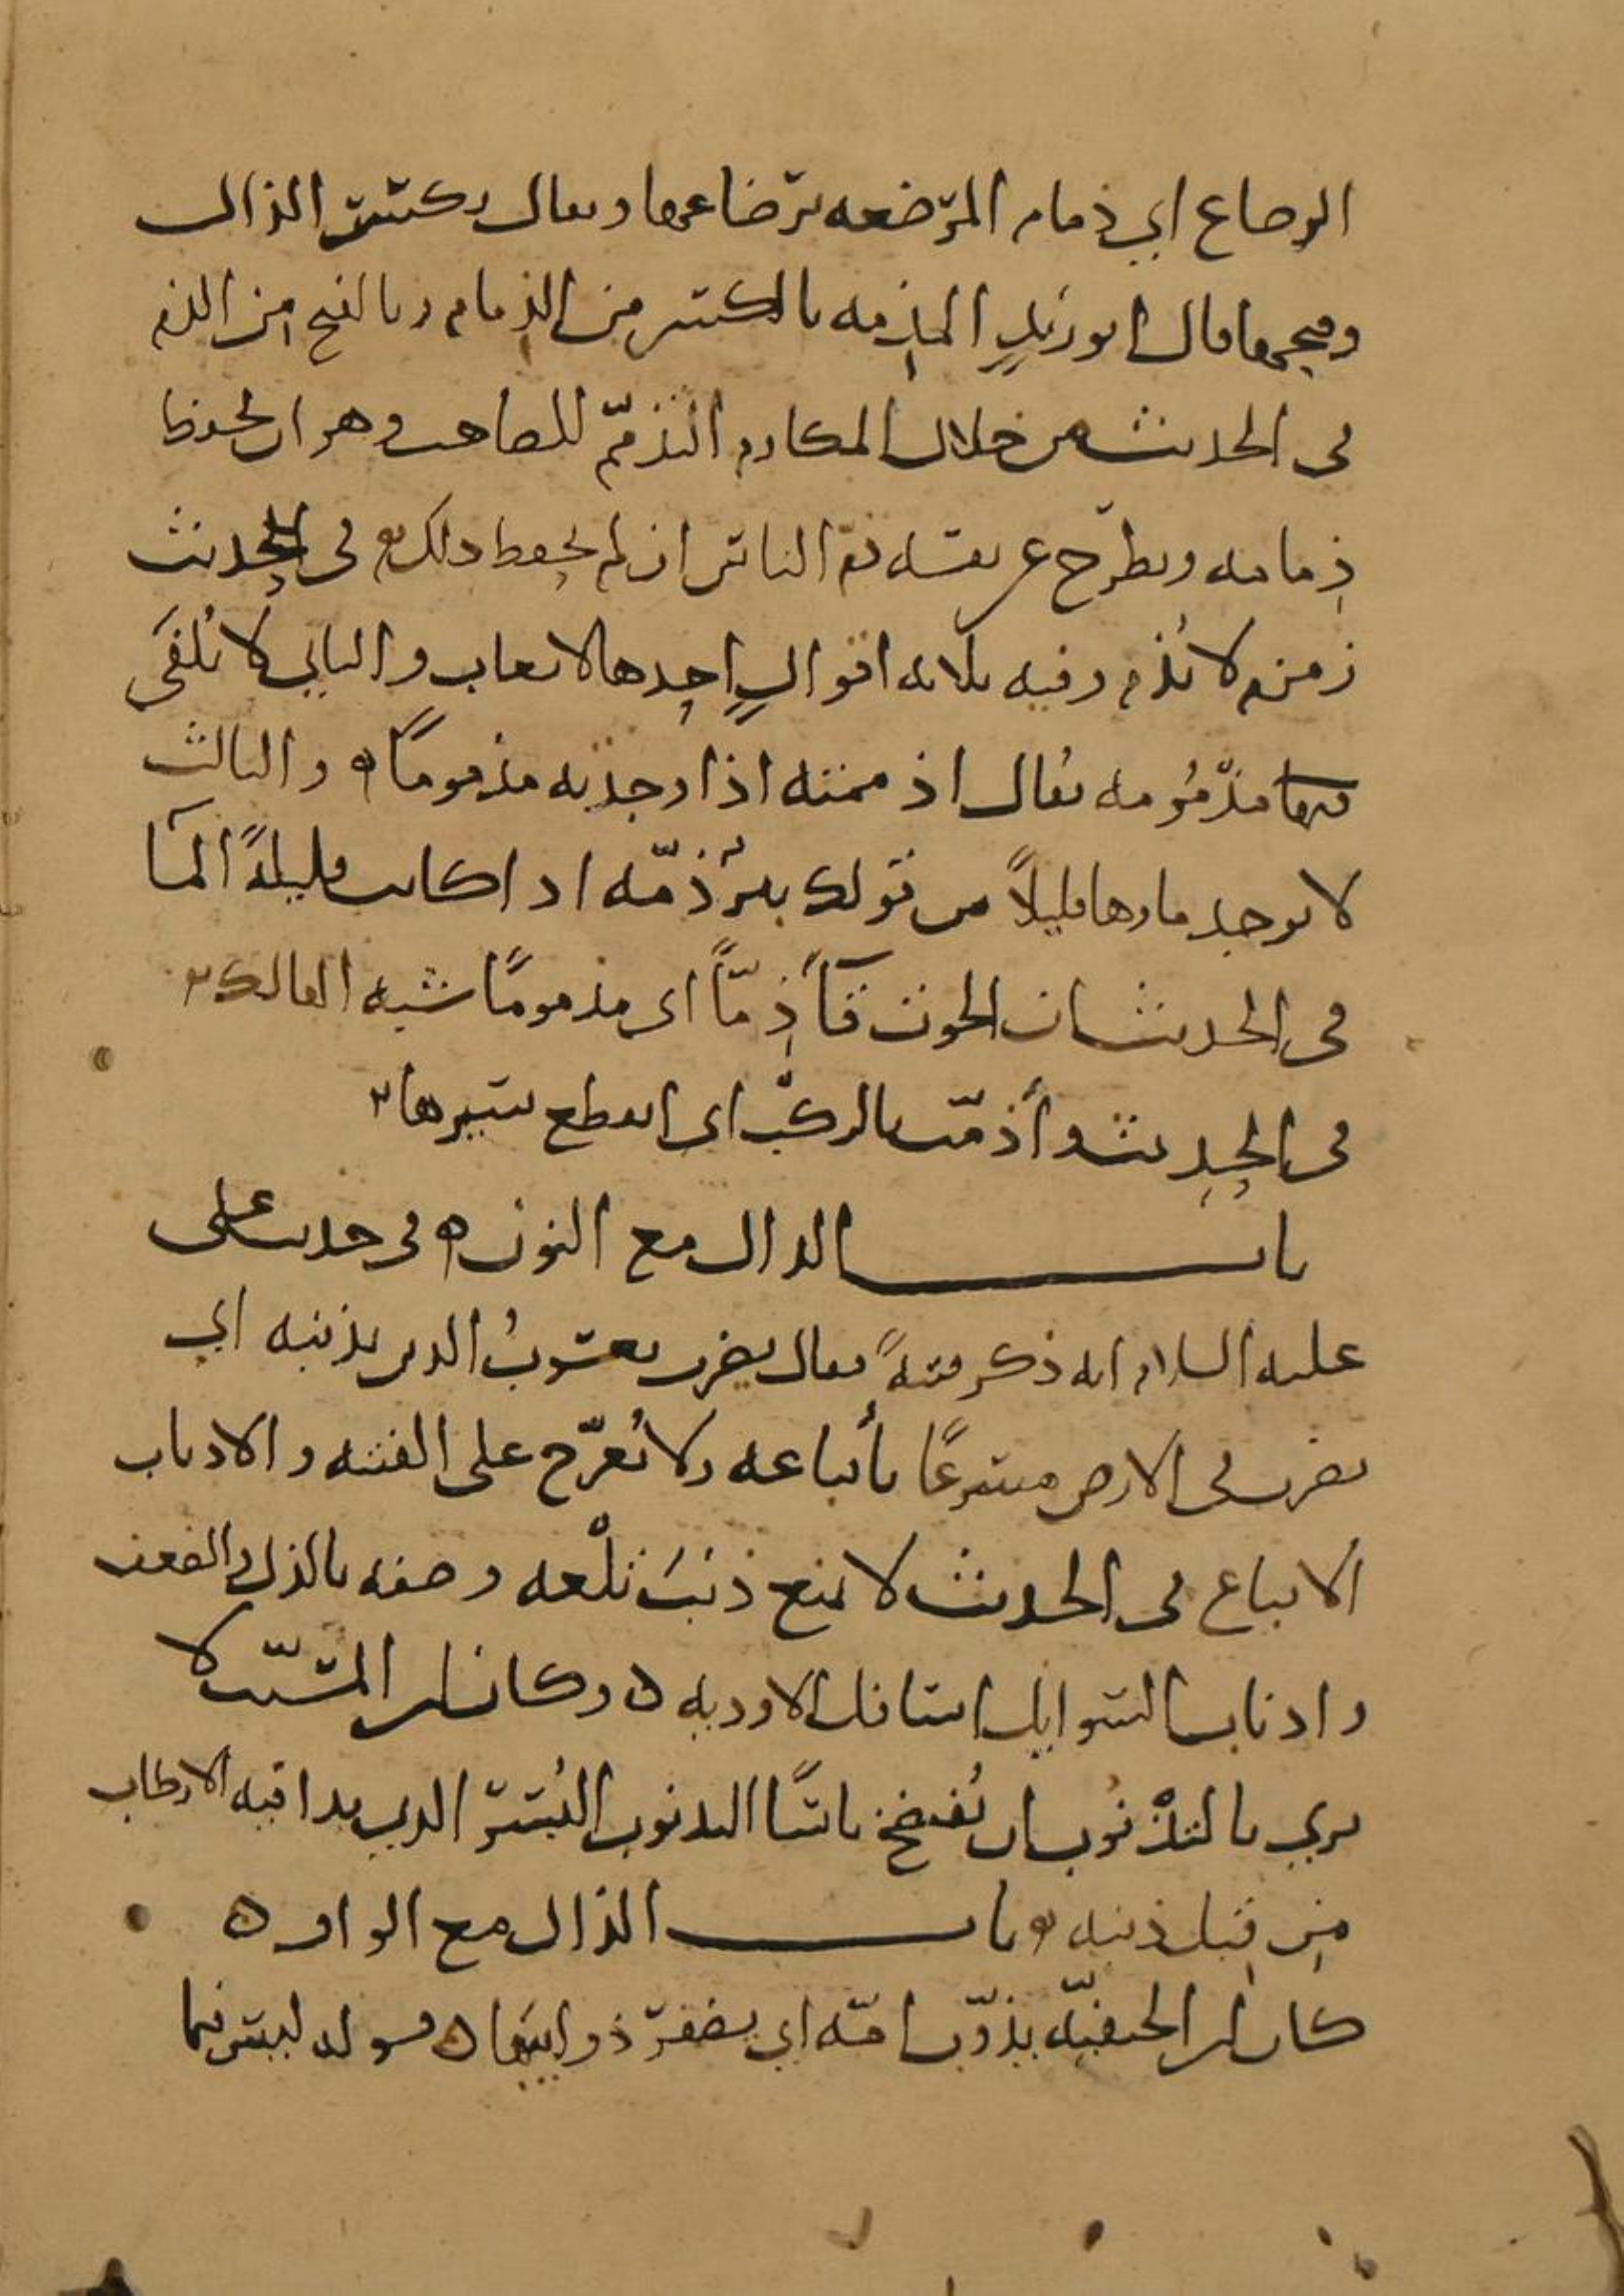 الرضاع اي ذمام المرضعه برضاعها ويقال بكسر الذال
وفتحها قال ابو زيد المذمه بالكسر من الذمام وبالفتح من الذم
في الحديث من خلال المكارم التذمّم للصاحب وهو ان يحفظ
ذمامه ويطرح عن نفسه ذم الناس ان لم يحفظ ذلك في الحديث
زمزم لا تُذم وفيه ثلاثه اقوالٍ احدها لا تعاب والثاني لا تُلفَى
مذمُومه يقال اذممته اذا وجدته مذمومًا ه والثالث
لا يوجد ماوها قليلاً من قولك بئرٌ ذمّه اذا كانت قليلةً الماء
في الحديث ان الحوت قاءَ ذِمّاً اي مذمومًا شبه الهالك
في الحديث وأذمّت بالركب اي انقطع سيرها
باب الذال مع النون ه في حديث على
عليه السلام انه ذكر فتنةً فقال يضرب يعسوبُ الدين بذنبه اي
يضرب في الارض مسرعًا بأتباعه ولا يُعرّج على الفتنه والاذناب
الاتباع في الحديث لا يمنع ذنَبَ تلْعه وصفه بالذل والضعف
واذناب السوايل اسافل الاوديه ه وكان ابن المسيّب لا
يري بالتذنُوب ان يُفتضخ باسًا التذنوب البُسر الذي بدا فيه الارطاب
من قِبل ذنبه ه باب الذال مع الواو ه
كان ابن الحنفيّه يذوّب امّه اي يضفر ذوايبها ه قوله ليس فيما